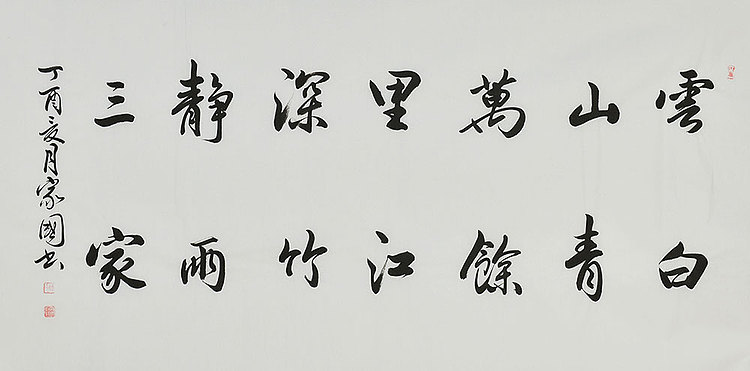 雲白
山青
萬餘
里江
深竹
静兩
三家
丁酉夏月家國书